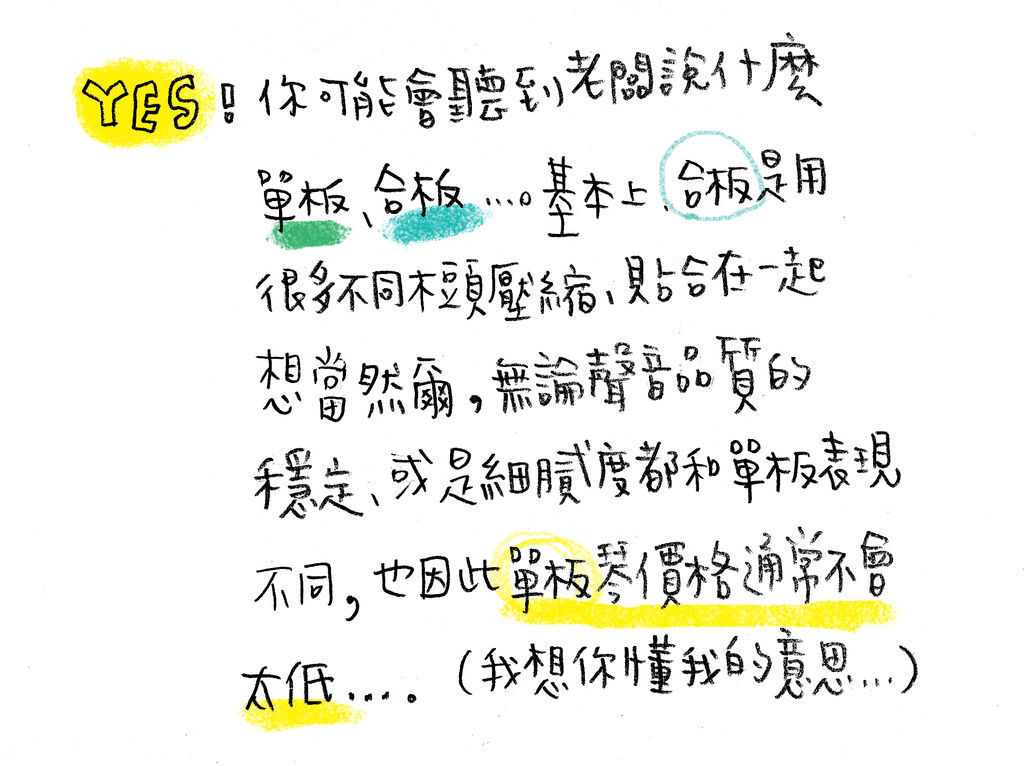 YES！你可能會聽到老闆說什麼
單板、合板…。基本上、合板是用
很多不同木頭壓縮、貼合在一起
想當然爾，無論聲音品質的
穩定、或是細膩度都和單板表現
不同，也因此單板琴價格通常不會
太低….。（我想你懂我的意思…）